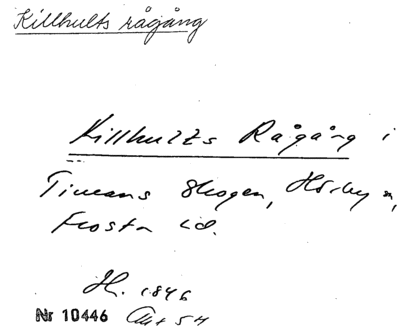 Killhults rågång
Killhults Rågång i
Timans Skogen, Hörby sn,
Frosta hd.
H. 1846
Nr 10446 Akt 54